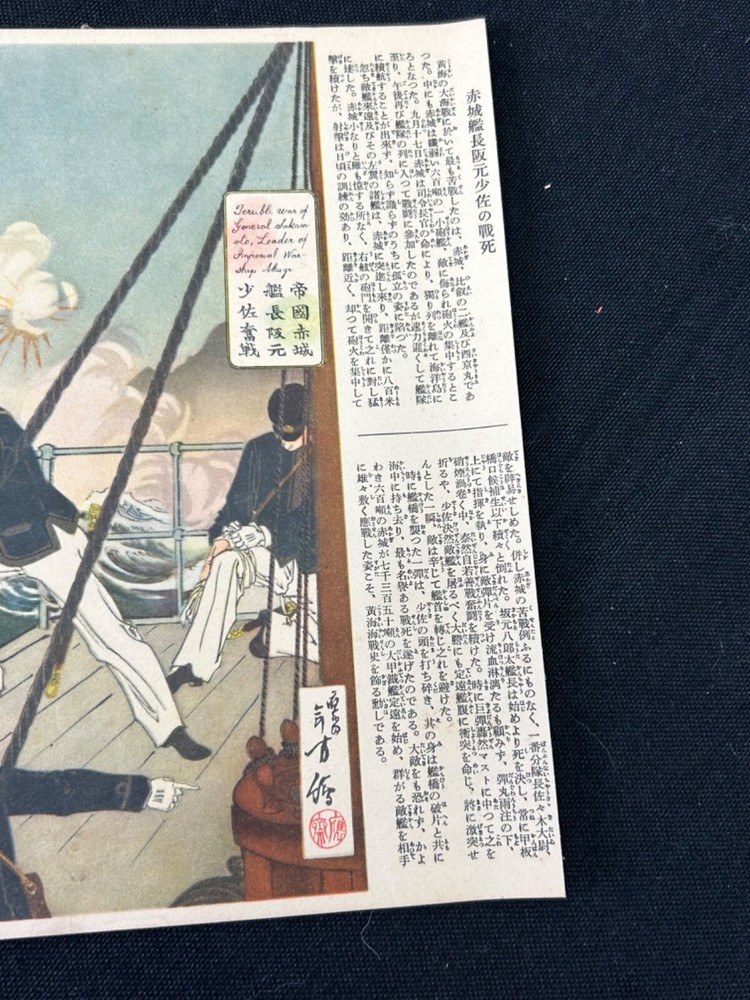 赤城艦長阪元少佐の戰死
黃海の大海戰に於いて最も苦戰したのは、赤城、比叡の二艦及び西京丸であ
つた。中にも赤城は纖弱い六百噸の一小砲艦、敵に侮られ砲火の集中するとこ
ろとなつた。九月十七日赤城は司令長官の命により、獨り列を離れて海洋島に
至り、午後再び艦隊の列に入つて戰鬪に參加したのであるが速力遲くして艦隊
に續航することが出來ず、知らず識らずのうちに孤立の姿に陷つた。
忽ち敵艦來遠及びその左翼の諸艦は、赤城に突進し來り、距離僅かに八百米
に達した。赤城小なりと雖も憶する所なく、右舷の砲門を開きて之れに對し猛
擊を續けたが、射擊は日頃の訓練の効あり、距離近く、却つて砲火を集中して
敵を辟易せしめた。併し赤城の苦戰例ふるにものなく、一番分隊長佐々木大尉、
橋口候補生以下續々と倒れた。坂元八郎太艦長は始めより死を決し、常に甲板
上にて指揮を執り、身に敵彈片を受け流血淋漓たるも顧みず、彈丸雨注の下、
硝煙渦卷く中、泰然自若善戰奮鬪を續けた。時に巨彈轟然マストに中つて之を
折るや、少佐決然敵艦を屠るべく大膽にも定遠艦腹に衝突を命じ、將に激突せ
んとした一瞬、敵は辛じて艦首を轉じ之れを避けた。
時に艦橋を襲つた一彈は、少佐の頭を打ち碎き、其の身は艦橋の破片と共に
海中に持ち去り、最も名譽ある戰死を遂げたのである。大敵をも恐れず、かよ
わき六百噸の赤城が七千三百五十噸の大甲鐵艦定遠を始め、群がる敵艦を相手
に雄々敷く應戰した姿こそ、黃海海戰史を飾る勳しである。
Terrible war of
General Sakam-
oto, Leader of
Imperial War-
ship Akagi
帝國赤城
艦長阪元
少佐奮戰